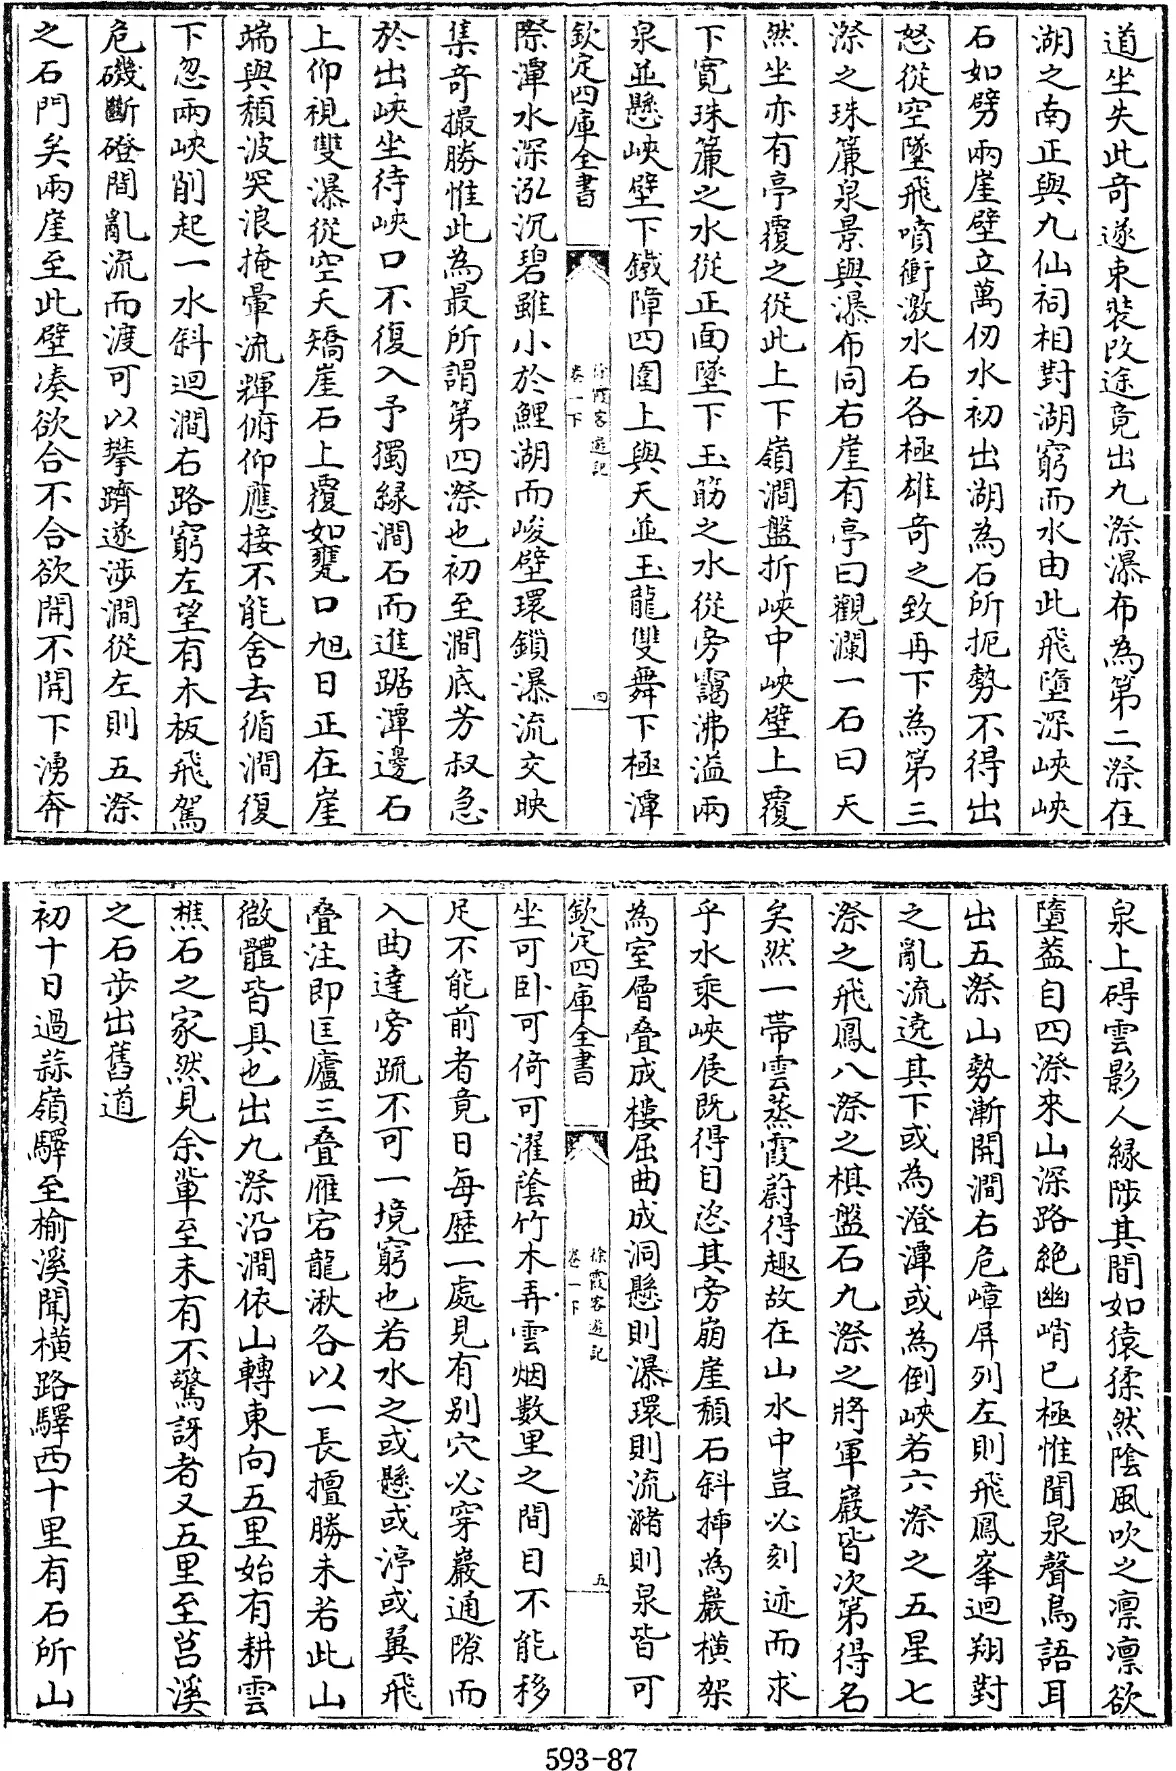 道坐失此奇遂束裝改途竟出九漈瀑布為第二漈在
湖之南正與九仙祠相對湖窮而水由此飛墮深峽峽
石如劈兩崖壁立萬仞水初出湖為石所扼勢不得出
怒從空墜飛噴衝激水石各極雄奇之致再下為第三
漈之珠簾泉景與瀑布同右崖有亭曰觀瀾一石曰天
然坐亦有亭覆之從此上下嶺澗盤折峽中峽壁上覆
下寛珠簾之水從正面墜下玉筯之水從旁靄沸溢兩
泉並懸峽壁下鐡障四圍上與天並玉龍雙舞下極潭
欽定四庫全書
徐霞客遊記
卷一下
四
際潭水深泓沉碧雖小於鯉湖而峻壁環鎖瀑流交映
集奇撮勝惟此為最所謂第四漈也初至澗底芳叔急
於出峽坐待峽口不復入予獨縁澗石而進踞潭邊石
上仰視雙瀑從空夭矯崖石上覆如甕口旭日正在崖
端與頽波突浪掩暈流輝俯仰應接不能舍去循澗復
下忽兩峽削起一水斜迴澗右路窮左望有木板飛駕
危磯斷磴間亂流而渡可以攀躋遂涉澗從左則五漈
之石門矣兩崖至此壁凑欲合不合欲開不開下湧奔
泉上碍雲影人縁陟其間如猿猱然陰風吹之凛凛欲
墮葢自四漈來山深路絶幽峭已極惟聞泉聲鳥語耳
出五漈山勢漸開澗右危嶂屏列左則飛鳳峯迴翔對
之亂流遶其下或為澄潭或為倒峽若六漈之五星七
漈之飛鳳八漈之棋盤石九漈之將軍巖皆次第得名
矣然一帶雲蒸霞蔚得趣故在山水中豈必刻迹而求
乎水乘峽展既得自恣其旁崩崖頽石斜揷為巖横架
為室層叠成樓屈曲成洞懸則瀑環則流瀦則泉皆可
欽定四庫全書
徐霞客遊記
卷一下
五
坐可卧可倚可濯蔭竹木弄雲烟數里之間目不能移
足不能前者竟日每歴一處見有别穴必穿巖通隙而
入曲達旁疏不可一境窮也若水之或懸或渟或翼飛
叠注即匡廬三叠雁宕龍湫各以一長擅勝未若此山
微體皆具也出九漈沿澗依山轉東向五里始有耕雲
樵石之家然見余輩至未有不驚訝者又五里至莒溪
之石步出舊道
初十日過蒜嶺驛至榆溪聞横路驛西十里有石所山
593-87